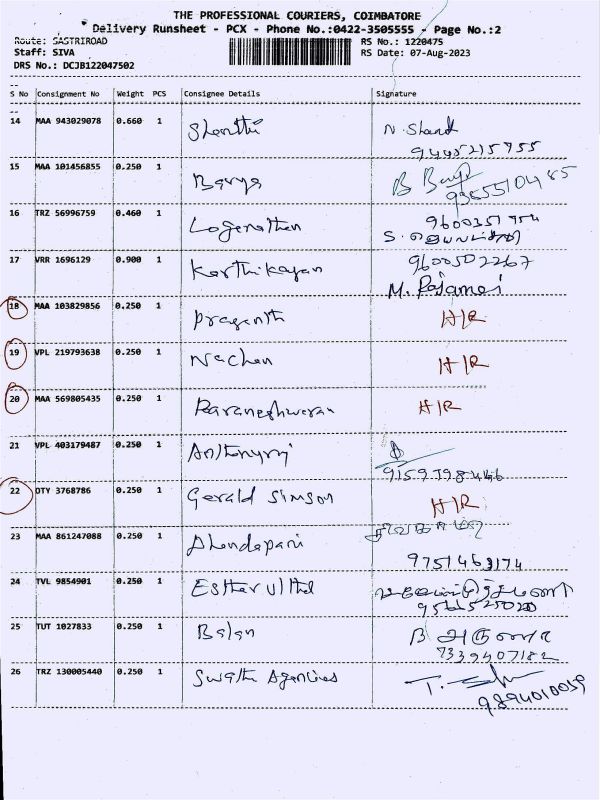 THE PROFESSIONAL COURIERS, COIMBATORE
Delivery Runsheet - PCX - Phone No.:0422-3505555 - Page No.:2
Route: SASTRIROAD RS No.: 1220475
Staff: SIVA RS Date: 07-Aug-2023
DRS No.: DCJB122047502
S No Consignment No Weight PCS Consignee Details Signature
14 MAA 943029078 0.660 1 Shanthi
15 MAA 101456855 0.250 1 Bavya B
16 TRZ 56996759 0.460 1 Loganathan 9600351954
17 VRR 1696129 0.900 1 Karthikayan 9600502267
M. Rajamani
18 MAA 103829856 0.250 1 Prasanth H/R
19 VPL 219793638 0.250 1 Nachan H/R
20 MAA 569805435 0.250 1 Paraneshwaran H/R
21 VPL 403179487 0.250 1
22 OTY 3768786 0.250 1 Gerald Simson H/R
23 MAA 861247088 0.250 1 Dhandapani
9751463174
24 TVL 9854901 0.250 1 Esther
25 TUT 1027833 0.250 1 Balan B
7339407182
26 TRZ 130005440 0.250 1 Swathi Agencies
9894010059